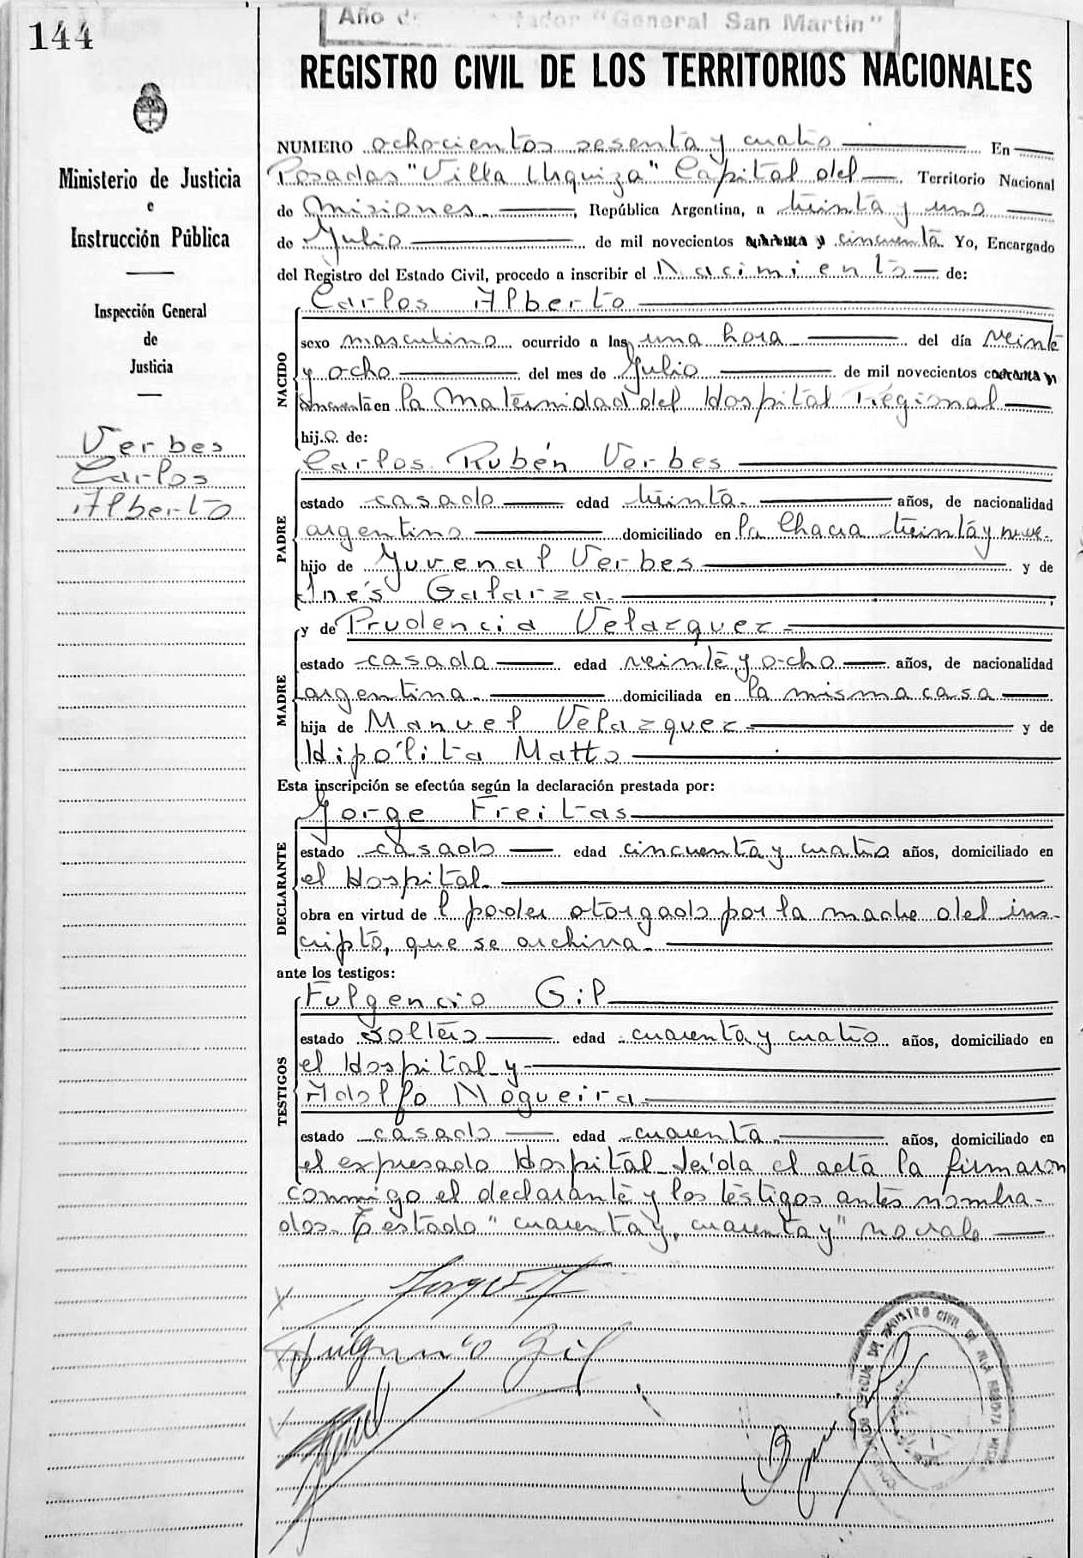 144
Año de tador "General San Martin"
REGISTRO CIVIL DE LOS TERRITORIOS NACIONALES
Ministerio de Justicia
e
Instrucción Pública
Inspección General
de
Justicia
Verbes
Carlos
Alberto
NUMERO ochocientos sesenta y cuatro En
Posadas "Villa Urquiza" Capital del Territorio Nacional
de Misiones. República Argentina, a treinta y uno
de Julio de mil novecientos cuarenta y cincuenta. Yo, Encargado
del Registro del Estado Civil, procedo a inscribir el Nacimiento de:
NACIDO
Carlos Alberto
sexo masculino ocurrido a las una hora del día veinte
y ocho del mes de Julio de mil novecientos cuarenta y
cincuenta en la Maternidad del Hospital Regional
hij.o de:
PADRE
Carlos Rubén Verbes
estado casado edad treinta. años, de nacionalidad
argentino domiciliado en la Chacra treinta y nueve.
hijo de Yuvenal Verbes y de
Inés Galarza.
MADRE
y de Prudencia Velazquez.
estado casada edad veinte y ocho años, de nacionalidad
argentina. domiciliada en la misma casa
hija de Manuel Velazquez y de
Hipólita Matto
Esta inscripción se efectúa según la declaración prestada por:
DECLARANTE
Jorge Freitas
estado casado edad cincuenta y cuatro años, domiciliado en
el Hospital.
obra en virtud de l poder otorgado por la madre del ins-
cripto, que se archiva.
ante los testigos:
TESTIGOS
Fulgencio Gil
estado soltero edad cuarenta y cuatro años, domiciliado en
el Hospital y
Adolfo Nogueira.
estado casado edad cuarenta. años, domiciliado en
el expresado Hospital. Leída el acta la firmaron
conmigo el declarante y los testigos antes nombra-
dos. Testado "cuarenta y, cuarenta y" no vale
Fulgencio Gil